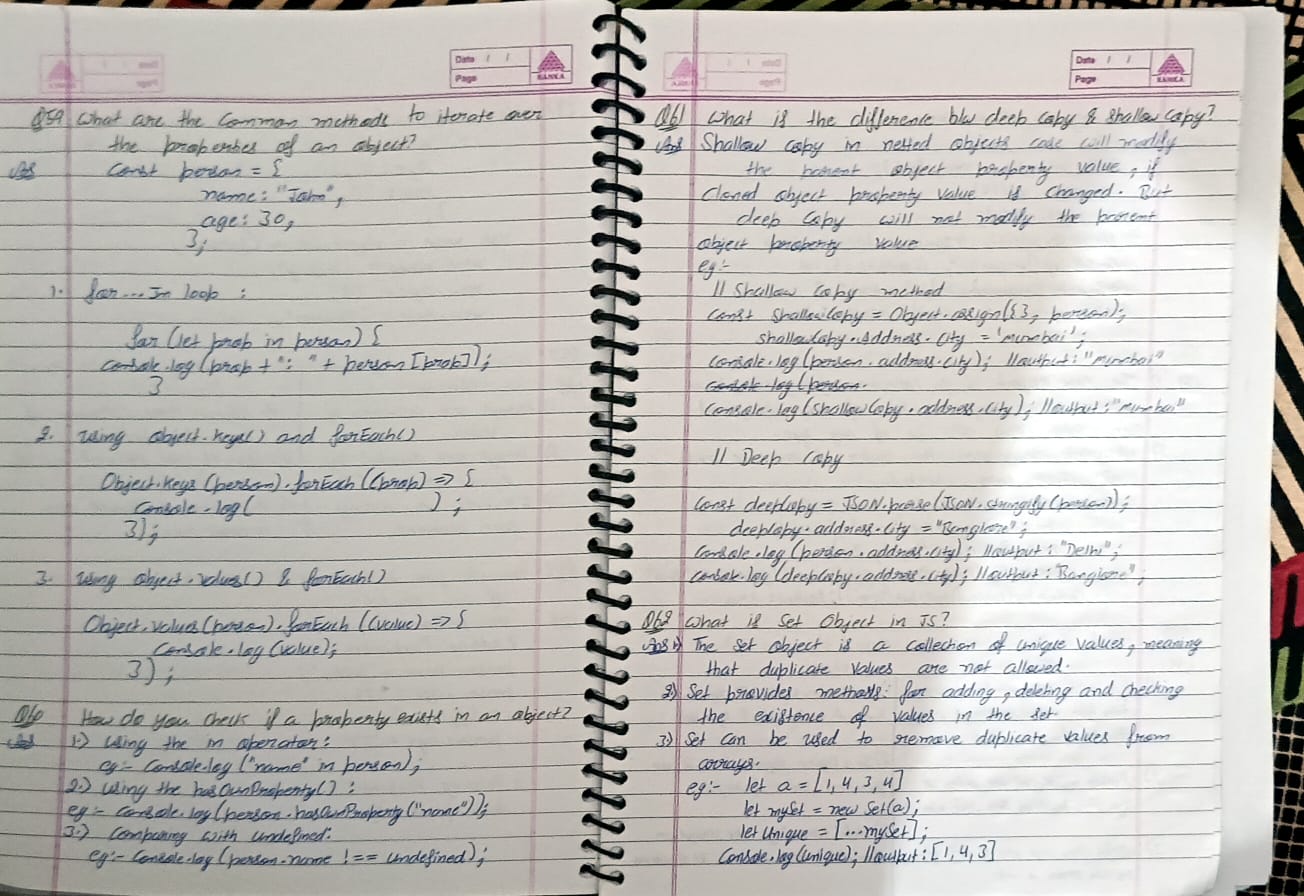 Date / /
Page
RANKA
Q59 What are the Common methods to iterate over
the properties of an object?
Ans const person = {
name: "John",
age: 30,
};
1. for...In loop :
for (let prop in person) {
console.log(prop + ": " + person [prop]);
}
2. using object.keys() and forEach()
Object.keys (person).forEach ((prop) => {
console.log( );
});
3. using object.values() & forEach()
Object.values(person).forEach ((value) => {
console.log(value);
});
Q60 How do you check if a property exists in an object?
Ans 1.) using the in operator:
eg:- console.log ("name" in person);
2.) using the hasOwnProperty() :
eg:- console.log (person.hasOwnProperty("name"));
3.) Comparing with undefined:
eg:- console.log (person.name !== undefined);
Date / /
Page
RANKA
Q61 What is the difference b/w deep copy & shallow copy?
Ans Shallow copy in nested objects case will modify
the parent object property value, if
cloned object property value is changed. But
deep copy will not modify the parent
object property value
eg:-
// Shallow copy method
const shallowCopy = Object.assign({}, person);
shallowCopy.Address.city = 'mumbai';
console.log(person.address.city); //output: "mumbai"
console.log(person.
console.log(shallowCopy.address.city); //output: "mumbai"
// Deep copy
const deepCopy = JSON.parse(JSON.stringify(person));
deepCopy.address.city = "Banglore";
console.log(person.address.city); //output: "Delhi";
console.log(deepCopy.address.city); //output: "Banglore";
Q62 What is Set Object in JS?
Ans 1) The Set object is a collection of unique values, meaning
that duplicate values are not allowed.
2) Set provides methods for adding, deleting and checking
the existence of values in the set.
3) Set can be used to remove duplicate values from
arrays.
eg:- let a = [1, 4, 3, 4]
let mySet = new Set(a);
let unique = [...mySet];
Console.log(unique); //output: [1, 4, 3]